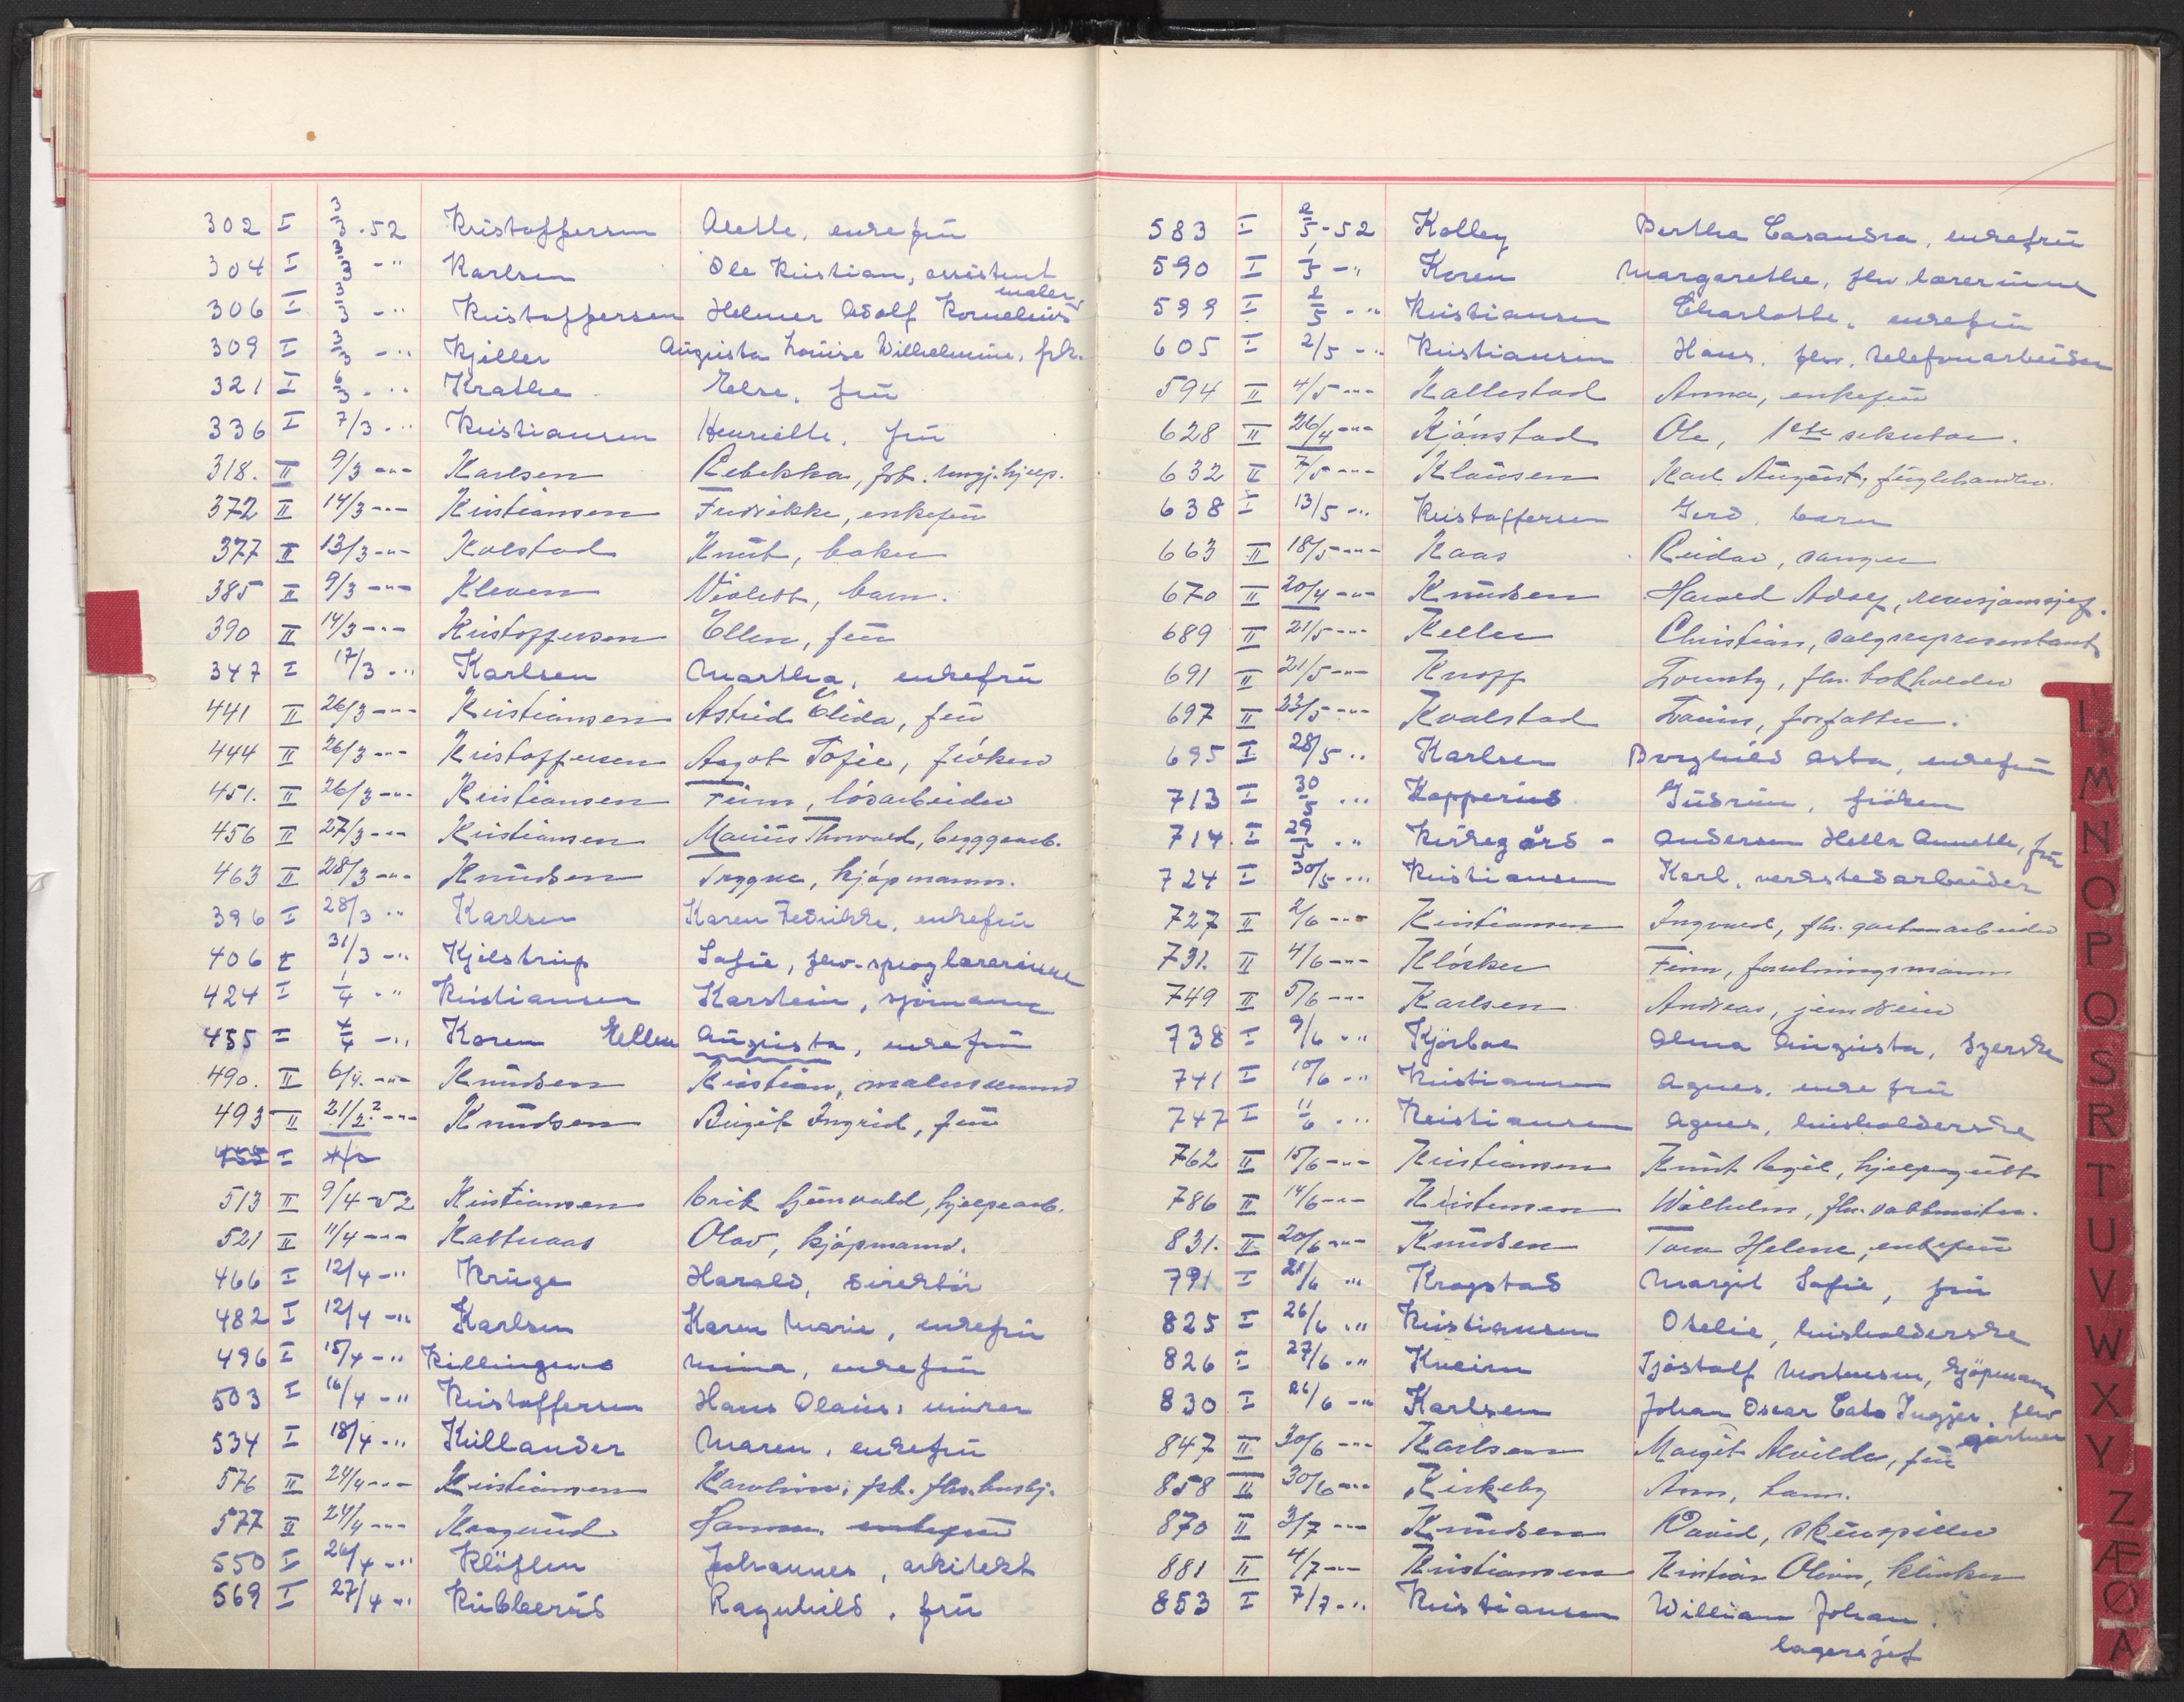 302 I 3/3 - 52 Kristoffersen Alette, enkefru
304 I 3/3 - " Karlsen Ole Kristian, assistent
maler
306 I 3/3 - " Kristoffersen Helmer Adolf Kornelius
309 I 3/3 - " Kjeller Augusta Louise Wilhelmine, frk.
321 I 6/3 - " Krathe Else, fru
336 I 7/3 - " Kristiansen Henriette, fru
318. II 9/3 - " - Karlsen Rebekka, fhv. rengj. hjelp.
372 II 14/3 - " - Kristiansen Fredrikke, enkefru
377 II 13/3 - " - Kolstad Knut, baker
385 II 9/3 - " - Kleven Violett, barn.
390 II 14/3 - " - Kristoffersen Ellen, fru
347 I 17/3 - " Karlsen Martha, enkefru
441 II 26/3 - " - Kristiansen Astrid Elida, fru
444 II 26/3 - " - Kristoffersen Aagot Sofie, frøken
451. II 26/3 - " - Kristiansen Finn, løsarbeider
456 II 27/3 - " - Kristiansen Marius Thorvald, byggearb.
463 II 28/3 - " - Knudsen Trygve, kjøpmann.
396 I 28/3 " Karlsen Karen Fedrikke, enkefru
406 I 31/3 - " Kjelstrup Sofie, fhv. språglærerinne
424 I 1/4 - " Kristiansen Karstein, sjømann
455 I 4/4 - " Koren Ellen Augusta, enkefru
490. II 6/4. - " - Knudsen Kristian, malersvend
493 II 21/2.² - " - Knudsen Birgit Ingrid, fru
455 I 4/4
513 II 9/4 - 52 Kristiansen Erik Gunvald, hjelpearb.
521 II 11/4 - " - Kattuaas Olav, kjøpmann.
466 I 12/4 - " Krüge Harald, direktør
482 I 12/4 - " Karlsen Karen Marie, enkefru
496 I 15/4 - " Killingmo Mina, enkefru
503 I 16/4 - " Kristoffersen Hans Olaus, murer
534 I 18/4 - " Killander Maren, enkefru
576 II 24/4 - " - Kristiansen Karoline, frk. fhv. husbj.
577 II 24/4 - " - Kragerud Hanna enkefru
550 I 26/4 - " Kløften Johannes, arkitekt
569 I 27/4 - " Kubberud Ragnhild, fru
583 I 2/5 - 52 Kolley Bertha Casandra, enkefru
590 I 1/5 - " Koren Margarethe, fhv lærerinne
599 I 2/5 - " Kristiansen Charlotte, enkefru
605 I 2/5 - " Kristiansen Hans, fhv. telefonarbeider
594 II 4/5 - " - Kallestad Anna, enkefru
628 II 26/4 - " - Kjønstad Ole, 1ste sekretær.
632 II 7/5 - " - Klausen Karl August, fuglehandler.
638 I 13/5 - " Kristoffersen Gerd, barn
663 II 18/5 - " - Kaas Reidar, sanger
670 II 20/4 - " - Knudsen Harald Adolf, revisjonssjef.
689 II 21/5 - " - Keller Christian, salgsrepresentant
691 II 21/5 - " - Knoff Lorentz, fhv. bokholder
697 II 23/5 - " - Kvalstad Louis, forfatter.
695 I 28/5 " Karlsen Borghild Asta, enkefru
713 I 30/5 - " Kopperud Gudrun, frøken
714. I 29/5 - " Kirkegård - Andersen Hella Annette, fru
724 I 30/5 - " Kristiansen Karl, verkstedarbeider
727 II 2/6 - " - Kristiansen Ingvald, fhv. gartnerarbeider
731. II 4/6 - " - Kløcker Finn, forretningsmann
749 II 5/6 - " - Karlsen Andreas, jerndreier
738 I 9/6 - " Kjørboe Alma Augusta, syerske
741 I 10/6 - " Kristiansen Agnes, enkefru
747 I 11/6 - " Kristiansen Agnes, husholderske
762 II 15/6 - " - Kristiansen Knut Egil, hjelpegutt
786 II 14/6 - " - Kristensen Wilhelm, fhv. vaktmester.
831. II 20/6 - " - Knudsen Tora Helene, enkefru
791 I 21/6 " Krogstad Margit Sofie, fru
825 I 26/6 " Kristiansen Otelie, husholderske
826 I 27/6 - " Kveim Tjøstolf Mortensen, kjøpmann
830 I 26/6 - " Karlsen Johan Oscar Cato Ingjer, fhv
gartner
847 II 30/6 - " - Karlsen Margit Alvilde, fru
858 II 30/6 - " - Kirkeby Ann, barn.
870 II 3/7 - " - Knudsen David, skuespiller
881 II 4/7 - " - Kristiansen Kristian Oliver, klinker
853 I 7/7 - " Kristiansen William Johan,
lagersjef
L
M
N
O
P
Q
S
R
T
U
V
W
X
Y
Z
Æ
Ø
A